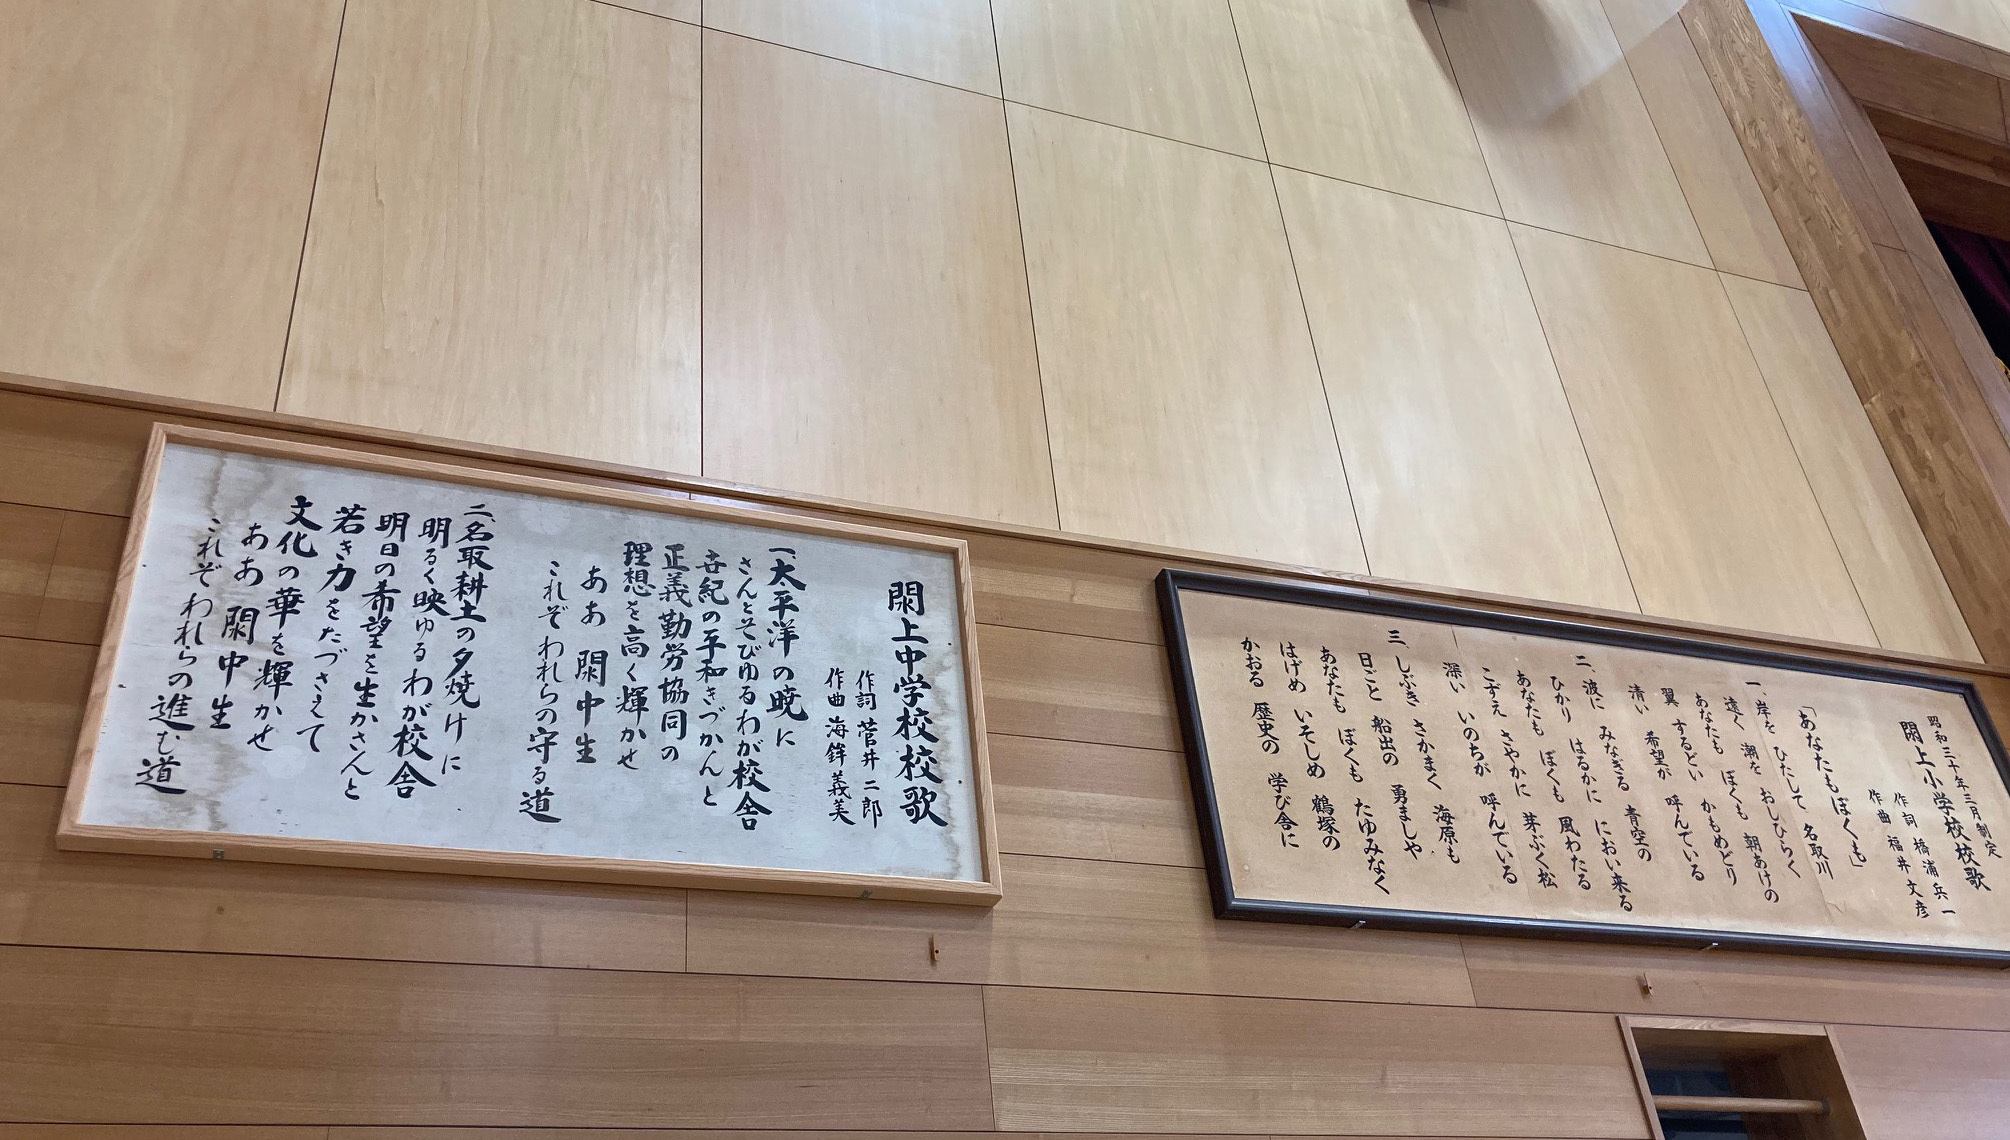 昭和三十年三月制定
閖上小学校校歌
作詞 橋浦兵一
作曲 福井文彦
「あなたもぼくも」
一、岸を ひたして 名取川
遠く 潮を おしひらく
あなたも ぼくも 朝あけの
翼 するどい かもめどり
清い 希望が 呼んでいる
二、波に みなぎる 青空の
ひかり はるかに におい来る
あなたも ぼくも 風わたる
こずえ さやかに 芽ぶく松
深い いのちが 呼んでいる
三、しぶき さかまく 海原も
日ごと 船出の 勇ましや
あなたも ぼくも たゆみなく
はげめ いそしめ 鶴塚の
かおる 歴史の 学び舎に
閖上中学校校歌
作詞 菅井二郎
作曲 海鉾義美
一、太平洋の暁に
さんとそびゆるわが校舎
世紀の平和きづかんと
正義勤労協同の
理想を高く輝かせ
ああ 閖中生
これぞわれらの守る道
二、名取耕土の夕焼けに
明るく映ゆるわが校舎
明日の希望を生かさんと
若き力をたづさえて
文化の華を輝かせ
ああ 閖中生
これぞわれらの進む道